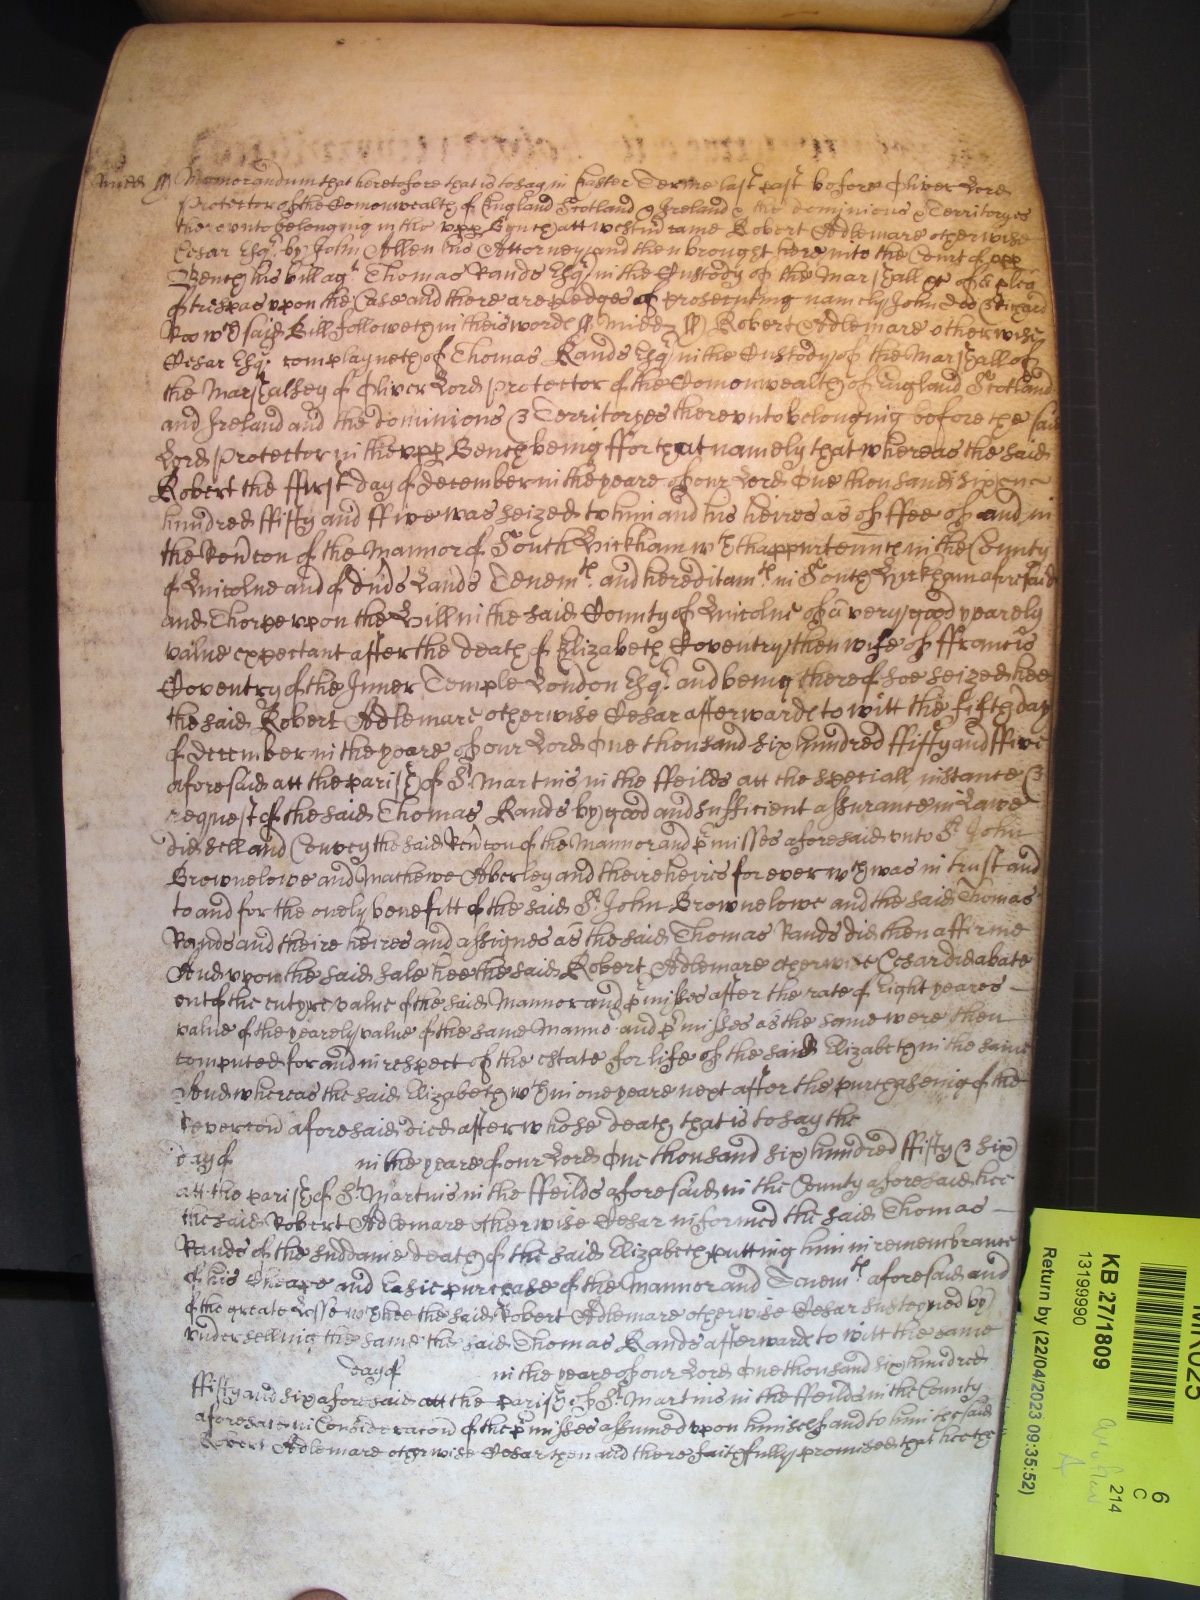 Midd ss Memorandum that heretofore that is to say in Easter Terme last past before Oliver Lord
Protector of the Comonwealth of England Scotland & Ireland & the dominions & Territoryes
thereunto belonging in the upp Bench att Westm came Robert Adlemare otherwise
Cesar Esqr by John Allen his Attorney and then brought here into the Court of upp
Bench his bill agt Thomas Rands Esqr in the Custody of the Marshall &c of a plea
of trespas upon the Case and there are pledges of prosecuting namely John Doe & Richard
Roo wch said Bill followeth in theis words ss Midd ss Robert Adlemare otherwise
Cesar Esqr complayneth of Thomas Rands Esqr in the Custody of the Marshall of
the Marshalsey of Oliver Lord Protector of the Comonwealth of England Scotland
and Ireland and the dominions & Territoryes thereunto belonging before the said
Lord Protector in the upp Bench being ffor that namely that whereas the said
Robert the ffirst day of december in the yeare of our Lord One thousand six
hundred ffifty and ffive was seized to him and his heires as of ffee of and in
the Revercon of the Mannor of South Wickham wth thappurtennces in the County
of Lincolne and of divs Lands Tenemts and hereditamts in South Wickham aforesaid
and Thorpe upon the Hill in the said County of Lincolne of a very good yearely
value expectant after the death of Elizabeth Coventry then wife of ffrancis
Coventry of the Inner Temple London Esqr and being thereof soe seized hee
the said Robert Adlemare otherwise Cesar afterwards to witt the fifth day
of december in the yeare of our Lord One thousand six hundred ffifty and ffive
aforesaid att the parish of St Martins in the ffeilds att the speciall instance &
request of the said Thomas Rands by good and sufficient assurance in Lawe
did sell and Convey the said Revercon of the Mannor and pmisses aforesaid unto Sr John
Brownelowe and Mathewe Aberley and theire heires for ever wch was in trust and
to and for the onely benefitt of the said Sr John Brownelowe and the said Thomas
Rands and theire heires and assignes as the said Thomas Rands did then affirme
And upon the said sale hee the said Robert Adlemare otherwise Cesar did abate
out of the entyre value of the said Mannor and pmisses after the rate of Eight yeares
value of the yearely value of the same Manno and pmisses as the same were then
computed for and in respect of the estate for life of the said Elizabeth in the same
And whereas the said Elizabeth wthin one yeare next after the purchaseing of the
revercon aforesaid died after whose death that is to say the
day of in the yeare of our Lord One thousand six hundred ffifty & six
att the parish of St Martins in the ffeilds aforesaid in the County aforesaid hee
the said Robert Adlemare otherwise Cesar informed the said Thomas
Rands of the suddaine death of the said Elizabeth putting him in remembrance
of his Cheape and Easie purchase of the Mannor and Tenemts aforesaid and
of the greate Losse wch hee the said Robert Adlemare otherwise Cesar susteyned by
undersellinge the same the said Thomas Rands afterwards to witt the same
day of in the yeare of our Lord One thousand six hundred
ffifty and six aforesaid att the parish of St Martins in the ffeilds in the County
aforesaid in Consideracon of the pmisses assumed upon himself and to him the said
Robert Adlemare otherwise Cesar then and there faithfully promised that hee the
MR025
KB 27/1809
13199990
Return by (22/04/2023 09:35:52)
6
C
214